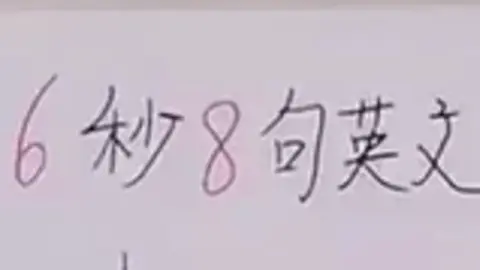 6秒8句英文